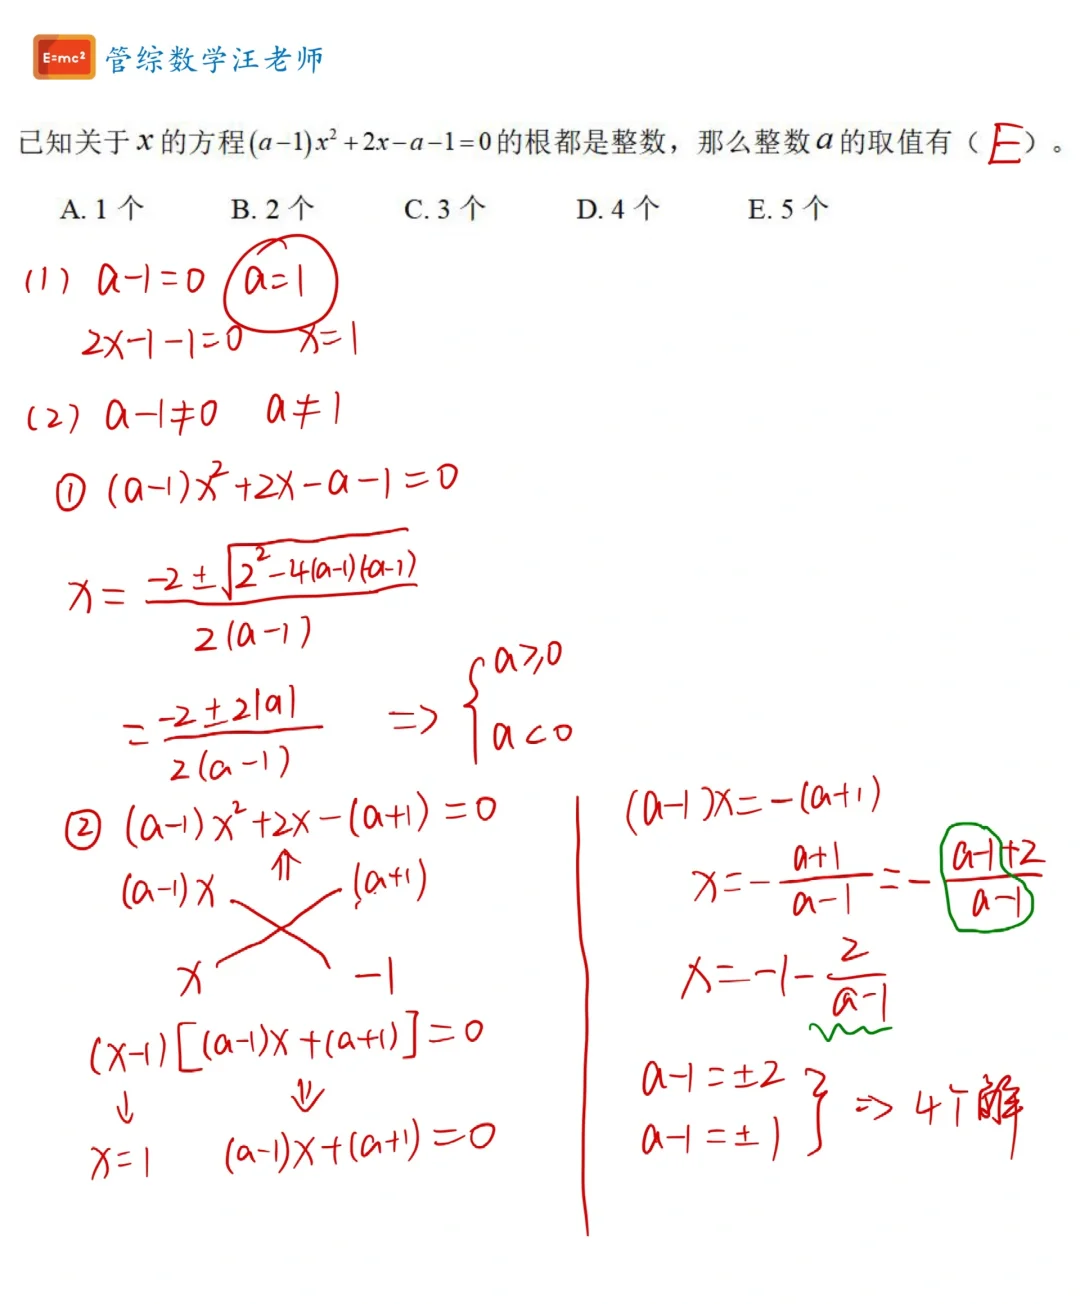 E=mc² 管综数学汪老师
已知关于 x 的方程(a-1)x²+2x-a-1=0的根都是整数，那么整数a的取值有（E）。
A. 1 个 B. 2 个 C. 3 个 D. 4 个 E. 5 个
(1) a-1=0 a=1
2x-1-1=0 x=1
(2) a-1≠0 a≠1
① (a-1)x²+2x-a-1=0
x= (-2±√(2²-4(a-1)(-a-1)))/(2(a-1))
= (-2±2|a|)/(2(a-1)) => { a≥0
a<0
② (a-1)x²+2x-(a+1)=0
⇑
(a-1)x (a+1)
x -1
(x-1)[(a-1)x+(a+1)]=0
↓ ⇓
x=1 (a-1)x+(a+1)=0
(a-1)x=-(a+1)
x=-(a+1)/(a-1)=-(a-1+2)/(a-1)
x=-1-2/(a-1)
a-1=±2
a-1=±1 } => 4个解